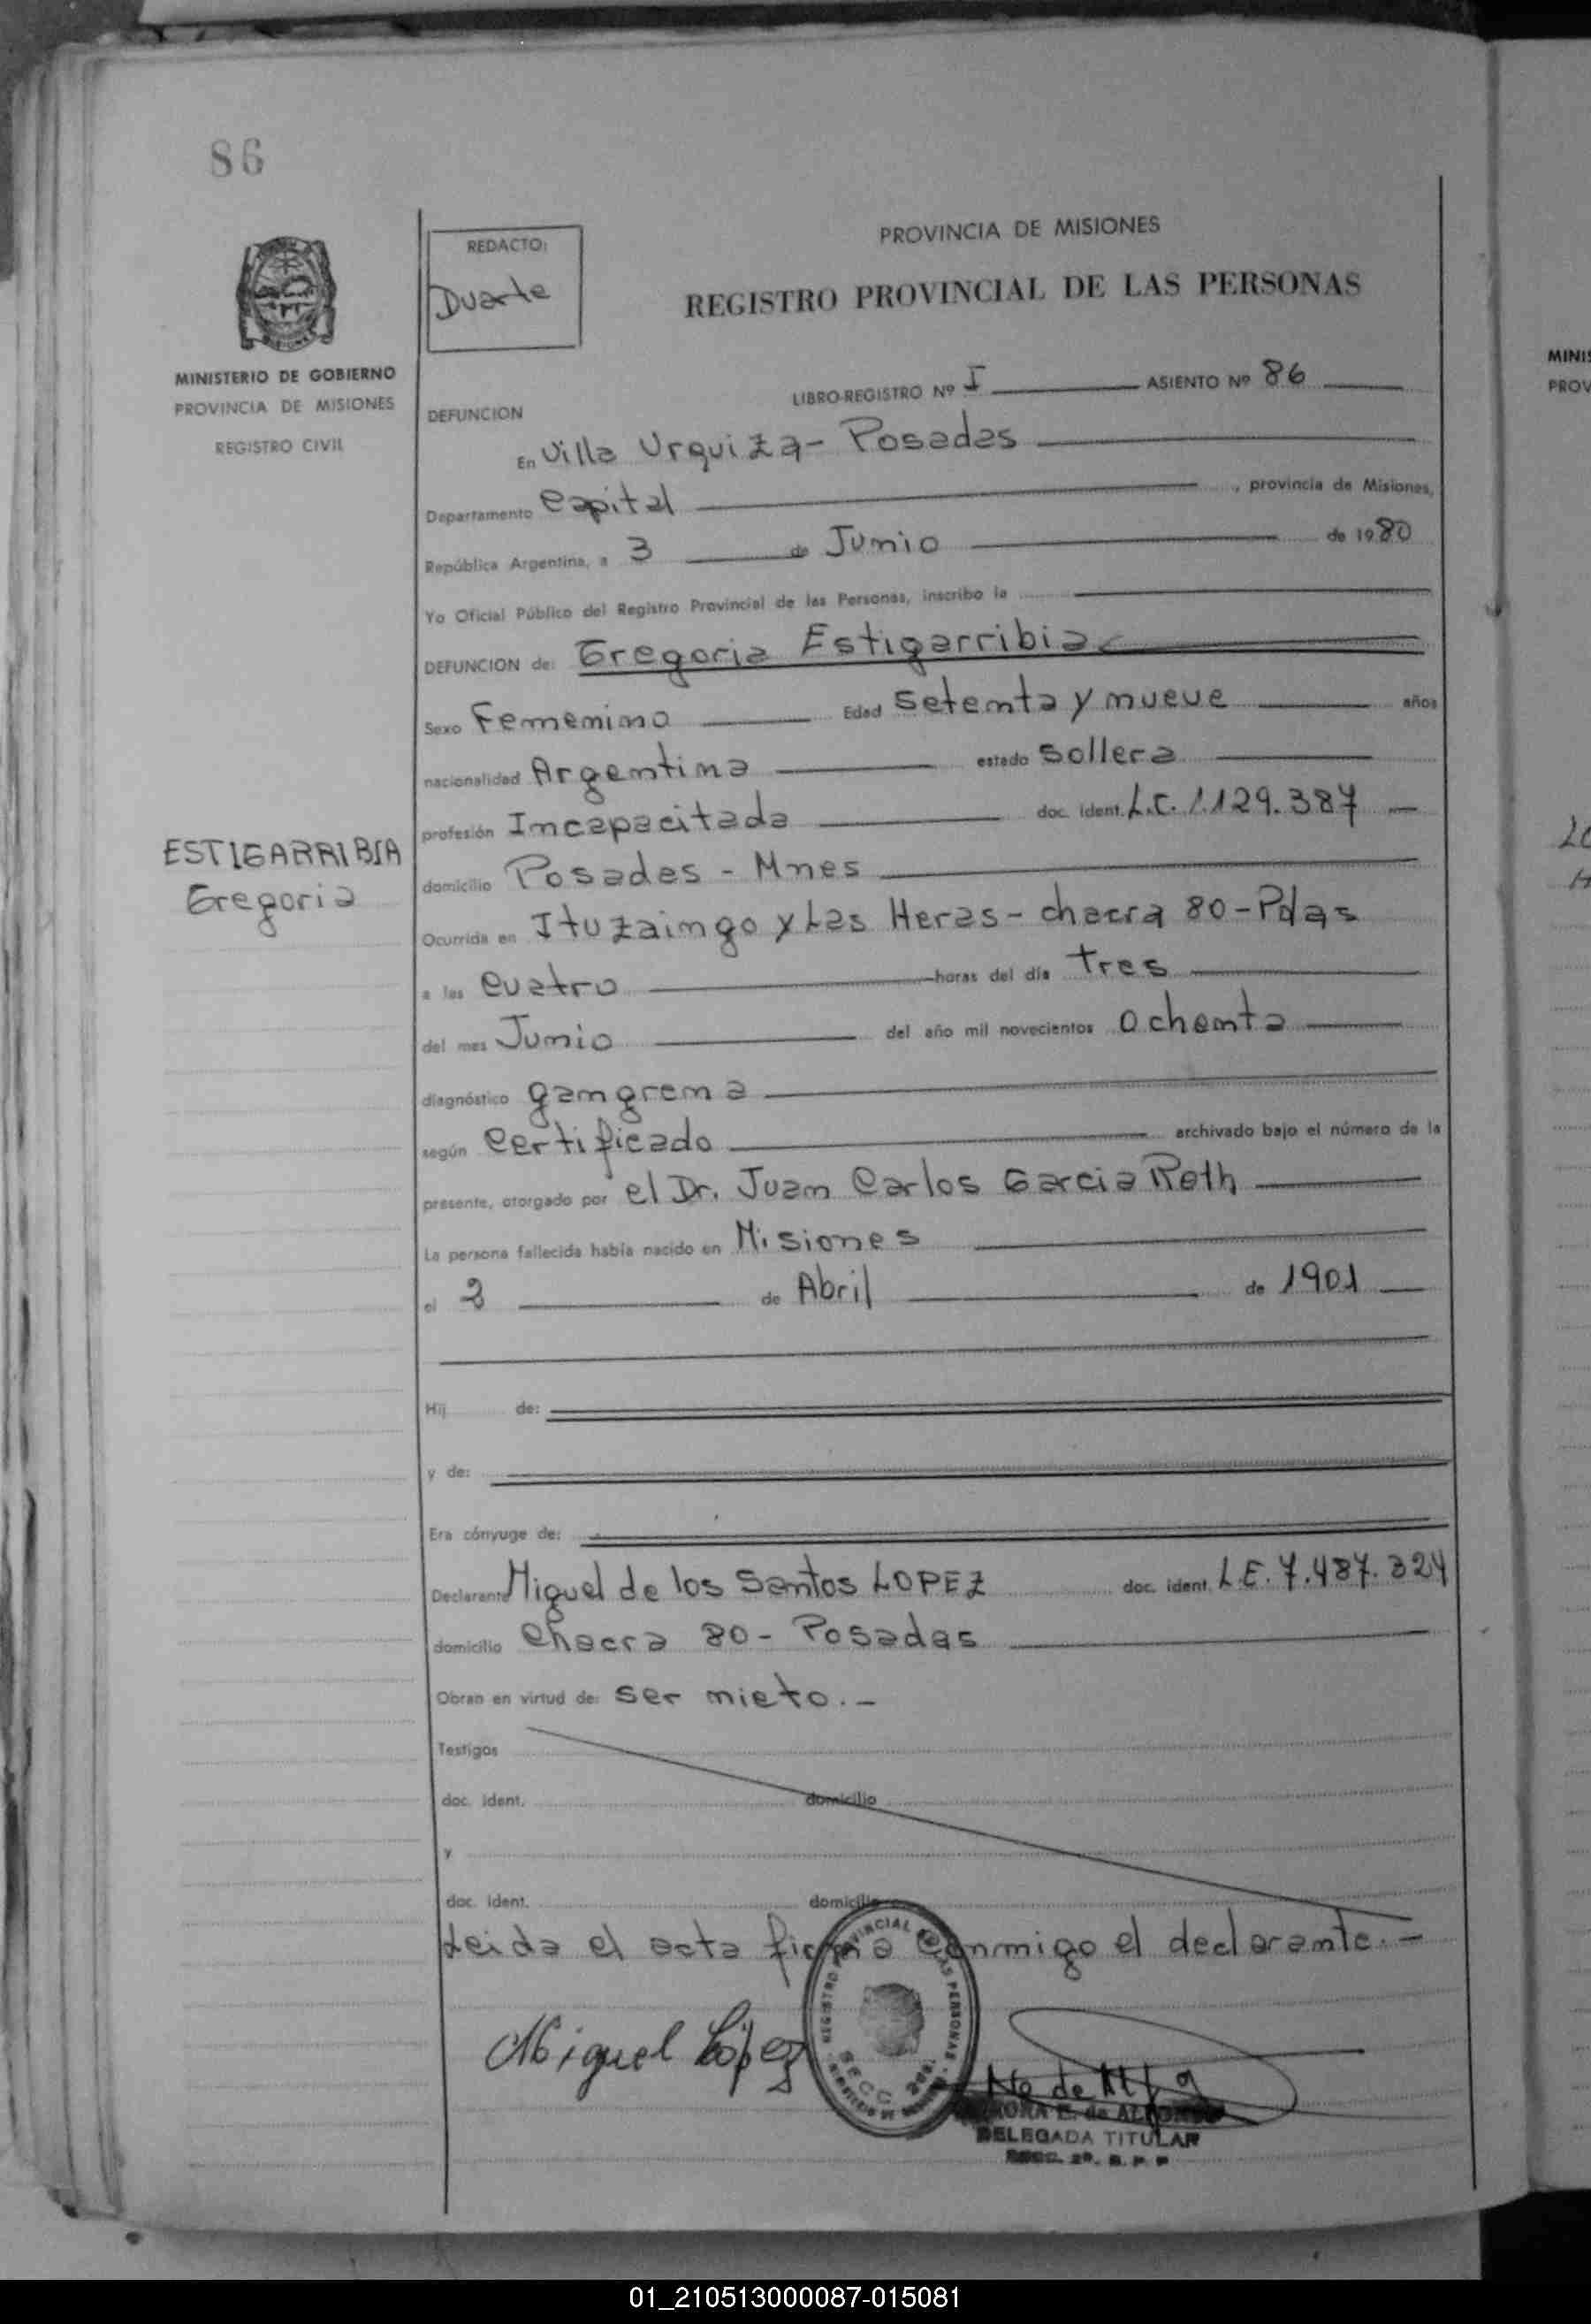 86
REDACTO:
Duarte
PROVINCIA DE MISIONES
REGISTRO PROVINCIAL DE LAS PERSONAS
MINISTERIO DE GOBIERNO
PROVINCIA DE MISIONES
REGISTRO CIVIL
LIBRO-REGISTRO Nº I ASIENTO Nº 86
DEFUNCION
En Villa Urquiza - Posadas
Departamento Capital, provincia de Misiones,
República Argentina, a 3 de Junio de 1980
Yo Oficial Público del Registro Provincial de las Personas, inscribo la
DEFUNCION de: Gregoria Estigarribia
Sexo Femenino Edad setenta y nueve años
nacionalidad Argentina estado sollera
profesión Incapacitada doc. ident. L.C. 1.129.387
ESTIGARRIBIA
Gregoria
domicilio Posadas - Mnes
Ocurrida en Ituzaingo y Las Heras - chacra 80 - Pdas
a las cuatro horas del día tres
del mes Junio del año mil novecientos ochenta
diagnóstico gangrena
según certificado archivado bajo el número de la
presente, otorgado por el Dr. Juan Carlos Garcia Roth
La persona fallecida había nacido en Misiones
el 2 de Abril de 1901
Hij de:
y de:
Era cónyuge de:
Declarante Miguel de los Santos LOPEZ doc. ident. L.E. 7.487.324
domicilio Chacra 80 - Posadas
Obran en virtud de: ser nieto.-
Testigos
doc. ident. domicilio
y
doc. ident. domicilio
Leida el acta firma conmigo el declarante.-
Miguel López
REGISTRO PROVINCIAL DE LAS PERSONAS
SECC. 2da.
DELEGADA TITULAR
SECC. 2ª. R. P. P
MINIS
PROV
01_210513000087-015081